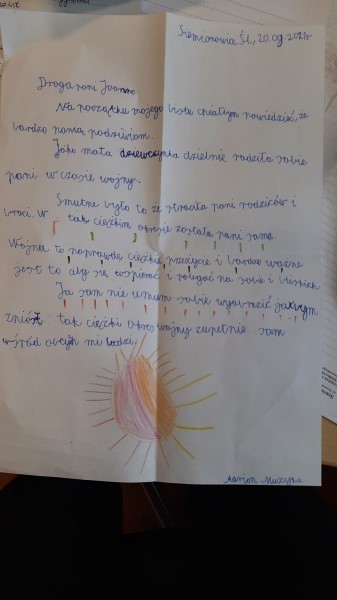 Siemianowice Śl., 20.09.2021r
Droga pani Joanno
Na początku mojego listu chciałbym powiedzieć, że
bardzo panią podziwiam.
Jako mała dziewczynka dzielnie radziła sobie
pani w czasie wojny.
Smutne było to że straciła pani rodziców i
braci. W tak ciężkim okresie została pani sama.
Wojna to naprawdę ciężkie przeżycie i bardzo ważne
jest to aby się wspierać i polegać na sobie i bliskich
Ja sam nie umiem sobie wyobrazić jakbym
zniósł tak ciężki okres wojny zupełnie sam
wśród obcych mi ludzi.
Muzyka